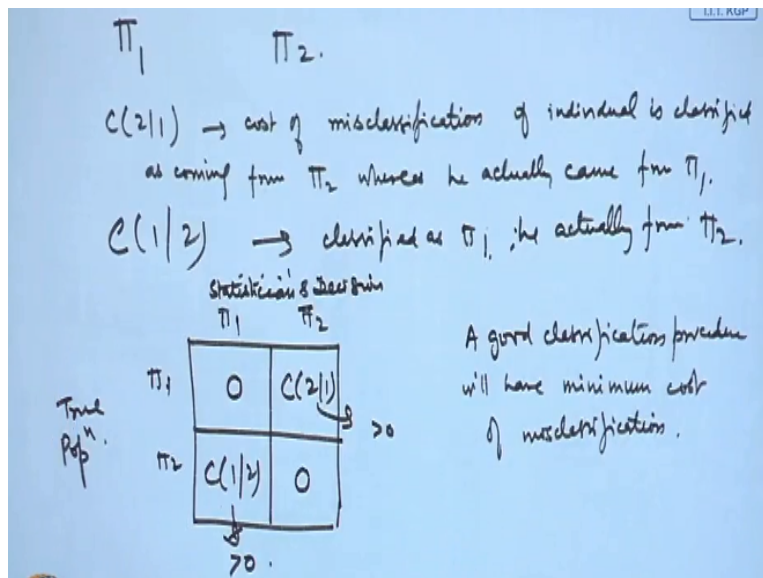 I.I.T. KGP
Π₁ Π₂.
C(2|1) → cost of misclassification of individual is classified
as coming from Π₂ whereas he actually came from Π₁.
C(1/2) → classified as Π₁, he actually from Π₂.
Statistician's Decision
Π₁ Π₂
Π₁ 0 C(2|1)
>0
True
Popⁿ.
Π₂ C(1/2) 0
>0.
A good classification procedure
will have minimum cost
of misclassification.